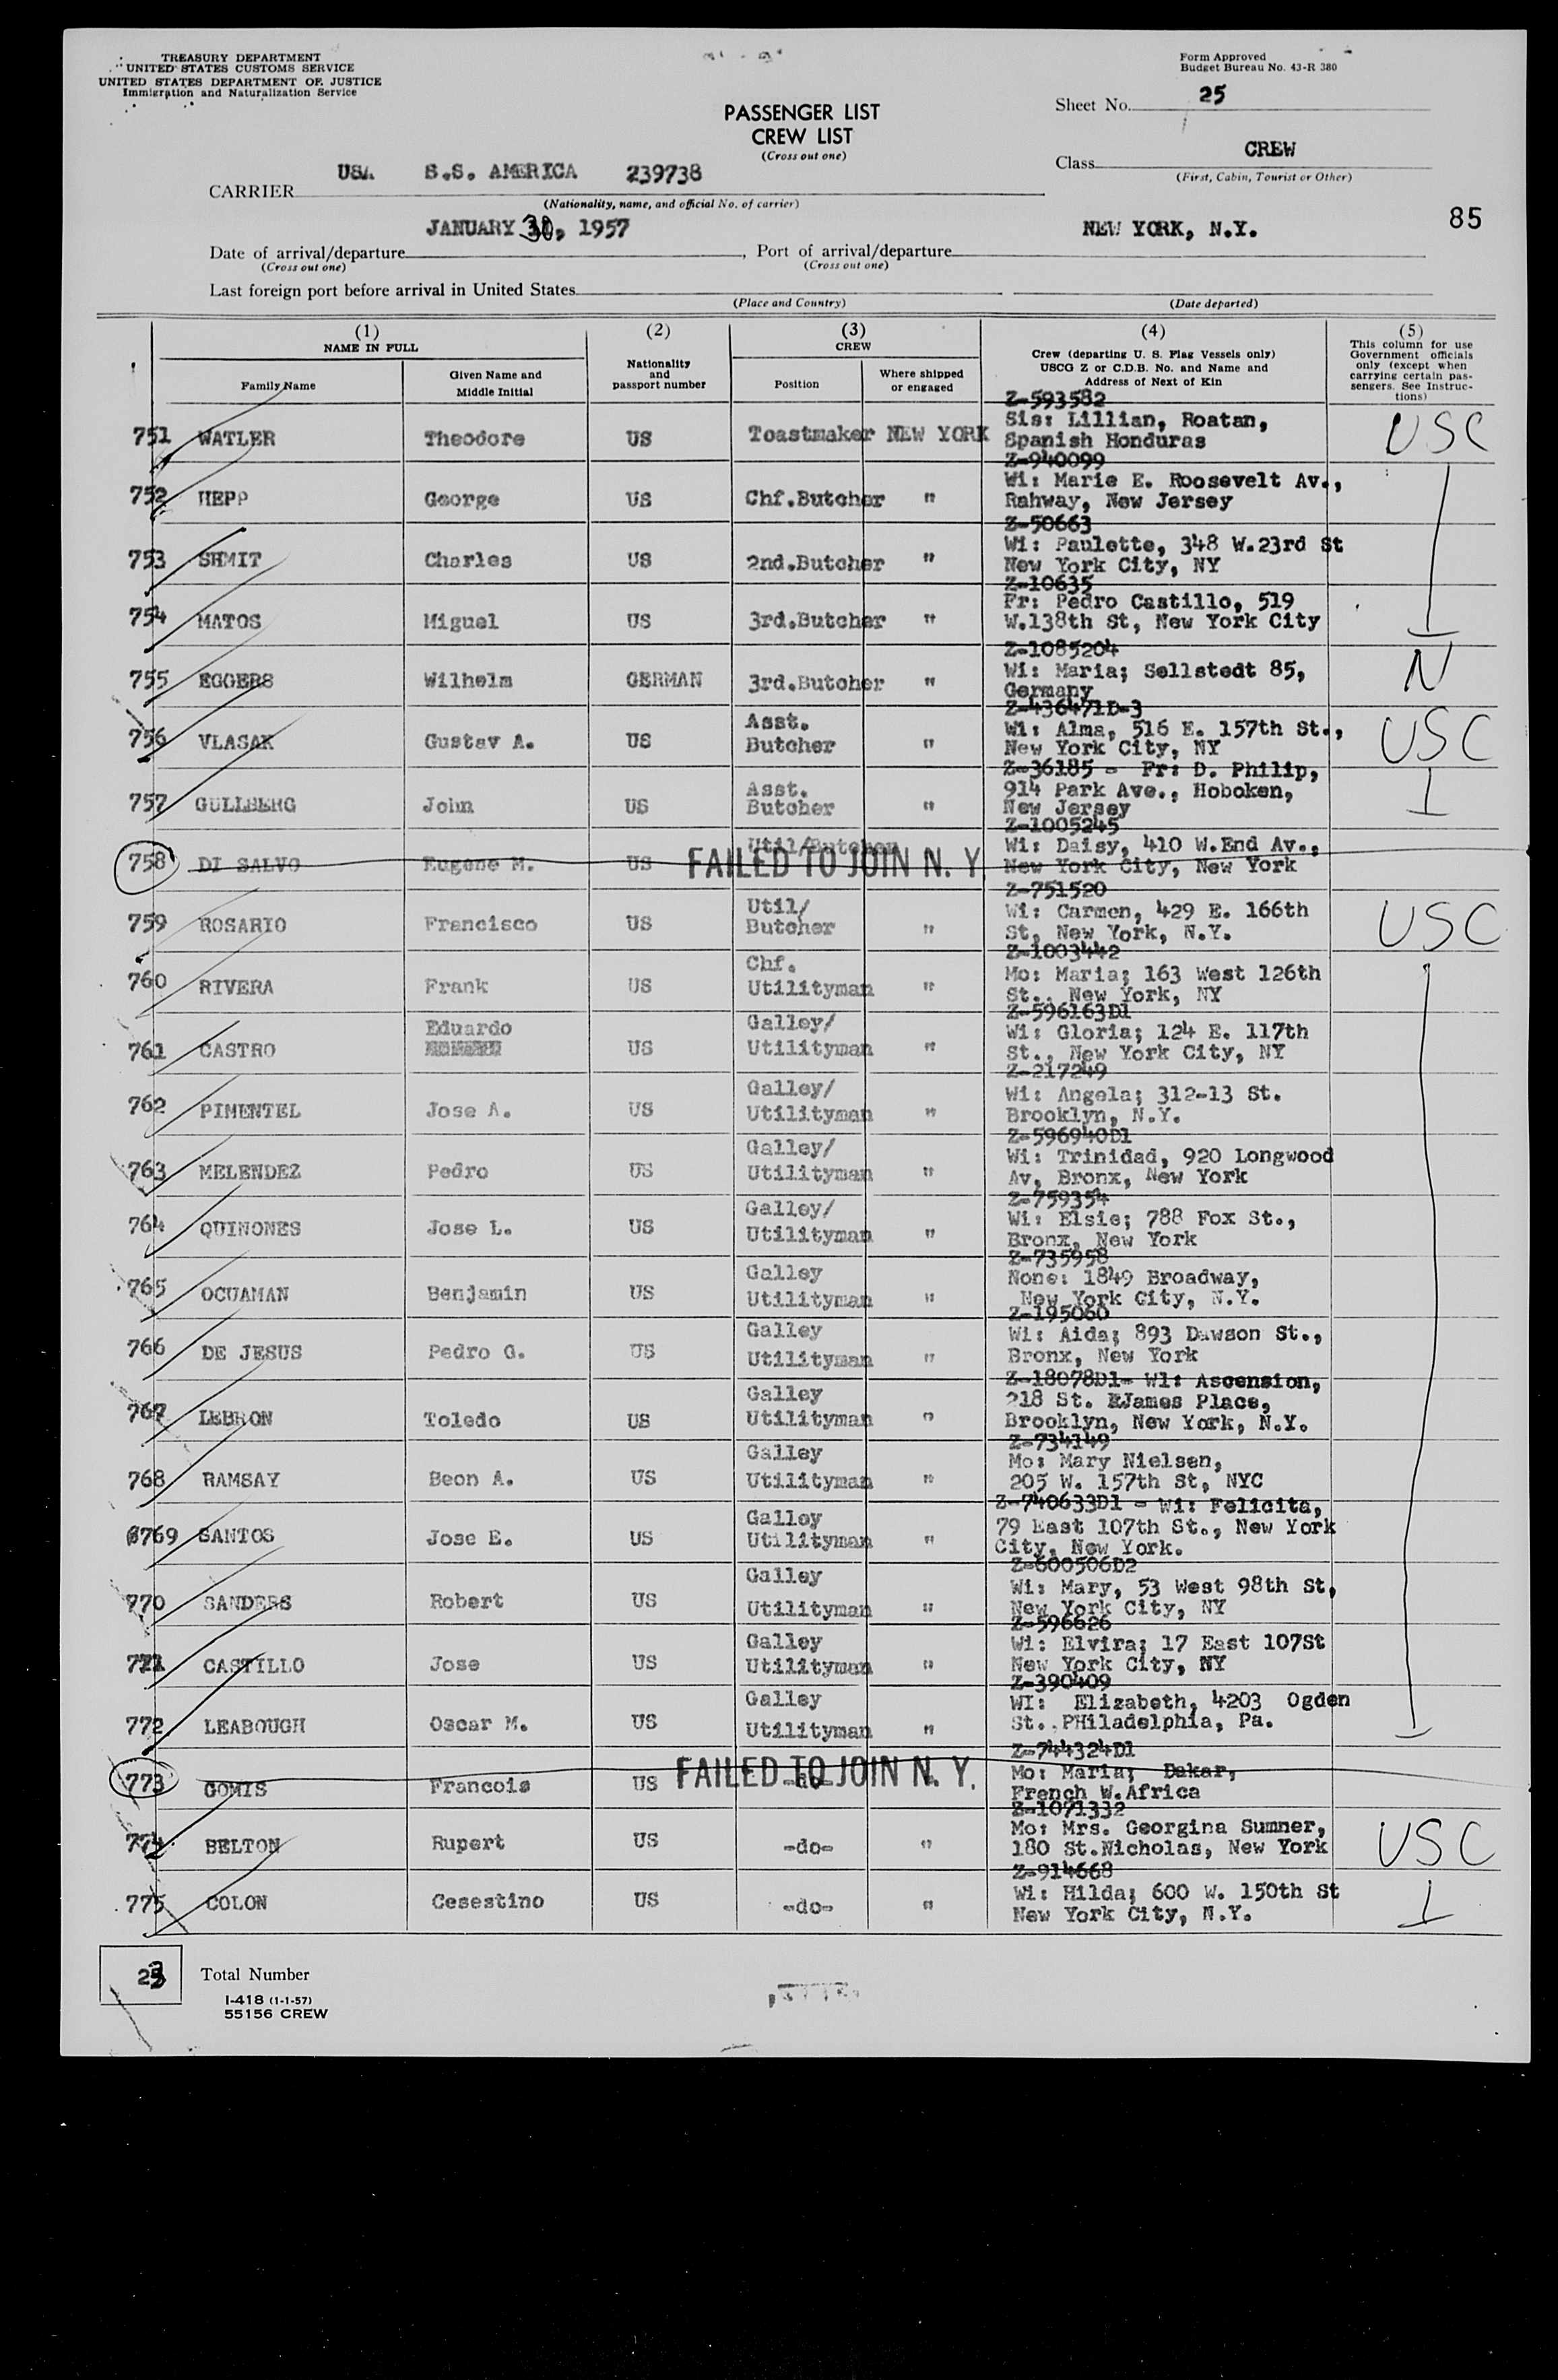 TREASURY DEPARTMENT
UNITED STATES CUSTOMS SERVICE
UNITED STATES DEPARTMENT OF JUSTICE
Immigration and Naturalization Service
Form Approved
Budget Bureau No. 43-R 380
Sheet No. 25
PASSENGER LIST
CREW LIST
(Cross out one)
Class CREW
(First, Cabin, Tourist or Other)
CARRIER USA S.S. AMERICA 239738
(Nationality, name, and official No. of carrier)
85
JANUARY 30, 1957 NEW YORK, N.Y.
Date of arrival/departure, Port of arrival/departure
(Cross out one) (Cross out one)
Last foreign port before arrival in United States
(Place and Country) (Date departed)
(1) NAME IN FULL
Family Name
Given Name and Middle Initial
(2) Nationality and passport number
(3) CREW
Position
Where shipped or engaged
(4) Crew (departing U. S. Flag Vessels only) USCG Z or C.D.B. No. and Name and Address of Next of Kin
(5) This column for use Government officials only (except when carrying certain passengers. See Instructions)
751 WATLER Theodore US Toastmaker NEW YORK Z-593582 Sis: Lillian, Roatan, Spanish Honduras USC
752 HEPP George US Chf.Butcher " Z-940099 Wi: Marie E. Roosevelt Av., Rahway, New Jersey
753 SHMIT Charles US 2nd.Butcher " Z-50663 Wi: Paulette, 348 W.23rd St New York City, NY
754 MATOS Miguel US 3rd.Butcher " Z-10635 Fr: Pedro Castillo, 519 W.138th St, New York City
755 EGGERS Wilhelm GERMAN 3rd.Butcher " Z-1085204 Wi: Maria; Sellstedt 85, Germany N
756 VLASAK Gustav A. US Asst. Butcher " Z-436471D-3 Wi: Alma, 516 E. 157th St., New York City, NY USC
757 GULLBERG John US Asst. Butcher " Z-36185 - Fr: D. Philip, 914 Park Ave., Hoboken, New Jersey
758 DI SALVO Eugene M. US Util/Butcher FAILED TO JOIN N. Y. Z-1005245 Wi: Daisy, 410 W.End Av., New York City, New York
759 ROSARIO Francisco US Util/ Butcher " Z-751520 Wi: Carmen, 429 E. 166th St, New York, N.Y. USC
760 RIVERA Frank US Chf. Utilityman " Z-1003442 Mo: Maria; 163 West 126th St., New York, NY
761 CASTRO Eduardo US Galley/ Utilityman " Z-596163D1 Wi: Gloria; 124 E. 117th St., New York City, NY
762 PIMENTEL Jose A. US Galley/ Utilityman " Z-217249 Wi: Angela; 312-13 St. Brooklyn, N.Y.
763 MELENDEZ Pedro US Galley/ Utilityman " Z-596940D1 Wi: Trinidad, 920 Longwood Av, Bronx, New York
764 QUINONES Jose L. US Galley/ Utilityman " Z-759354 Wi: Elsie; 788 Fox St., Bronx, New York
765 OCUAMAN Benjamin US Galley Utilityman " Z-735958 None: 1849 Broadway, New York City, N.Y.
766 DE JESUS Pedro G. US Galley Utilityman " Z-195060 Wi: Aida; 893 Dawson St., Bronx, New York
767 LEBRON Toledo US Galley Utilityman " Z-18078D1- Wi: Ascension, 218 St. EJames Place, Brooklyn, New York, N.Y.
768 RAMSAY Beon A. US Galley Utilityman " Z-734149 Mo: Mary Nielsen, 205 W. 157th St, NYC
6769 SANTOS Jose E. US Galley Utilityman " Z-740633D1 - Wi: Felicita, 79 East 107th St., New York City, New York.
770 SANDERS Robert US Galley Utilityman " Z-600506D2 Wi: Mary, 53 West 98th St, New York City, NY
771 CASTILLO Jose US Galley Utilityman " Z-596626 Wi: Elvira; 17 East 107St New York City, NY
772 LEABOUGH Oscar M. US Galley Utilityman " Z-390409 WI: Elizabeth, 4203 Ogden St., PHiladelphia, Pa.
773 GOMIS Francois US -do- FAILED TO JOIN N. Y. Z-744324D1 Mo: Maria; Dakar, French W.Africa
774 BELTON Rupert US -do- " Z-1071332 Mo: Mrs. Georgina Sumner, 180 St.Nicholas, New York USC
775 COLON Cesestino US -do- " Z-914668 Wi: Hilda; 600 W. 150th St New York City, N.Y.
23 Total Number
I-418 (1-1-57)
55156 CREW